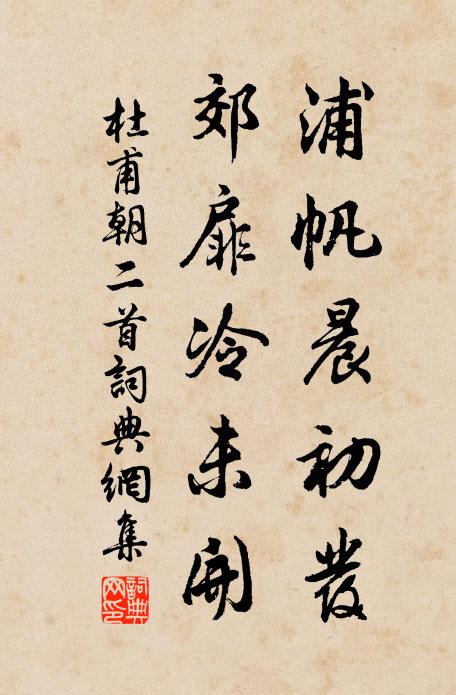 浦帆晨初發
郊扉冷未開
杜甫朝二首詞典網集
詞典網印